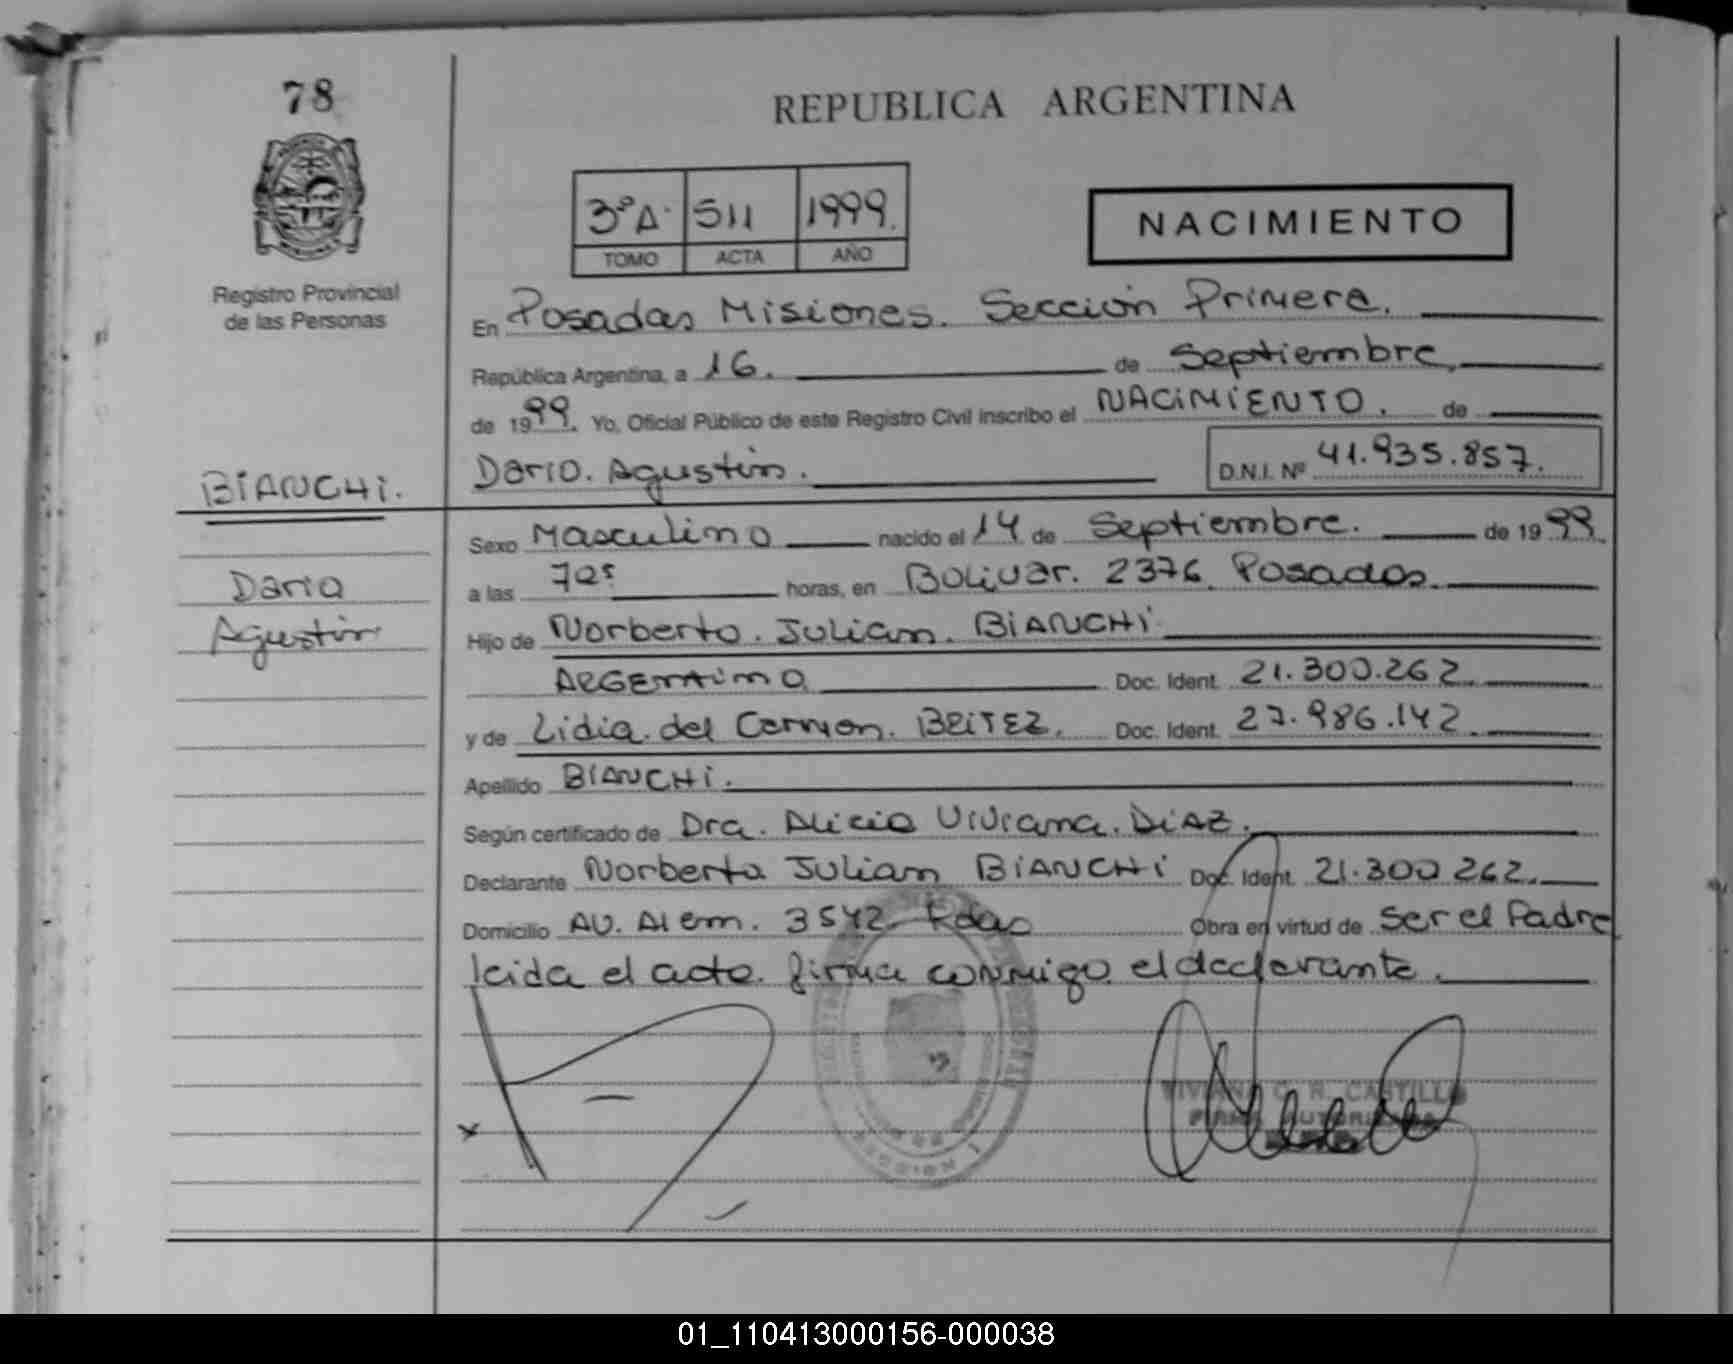 78
REPUBLICA ARGENTINA
3ºA 511 1999.
TOMO ACTA AÑO
NACIMIENTO
Registro Provincial
de las Personas
En Posadas Misiones. Sección Primera.
República Argentina, a 16. de Septiembre,
de 1999. Yo, Oficial Público de este Registro Civil inscribo el NACIMIENTO. de
BIANCHI. Dario. Agustin. D.N.I. Nº 41.935.857.
Sexo Masculino nacido el 14 de Septiembre. de 1999.
Dario a las horas, en Bolivar. 2376. Posadas.
Agustin Hijo de Norberto. Julian. BIANCHI.
ARGENTINO Doc. Ident. 21.300.262.
y de Lidia del Carmen. BEITEZ. Doc. Ident. 27.986.142.
Apellido BIANCHI.
Según certificado de Dra. Alicia Viviana. DIAZ.
Declarante Norberto Julian BIANCHI Doc. Ident. 21.300 262.
Domicilio AV. Alem. 3542. Pdas Obra en virtud de Ser el Padre
leida el acta. firma conmigo el declarante.
VIVIANA C. R. CASTILLO
FIRMA AUTORIZADA
01_110413000156-000038